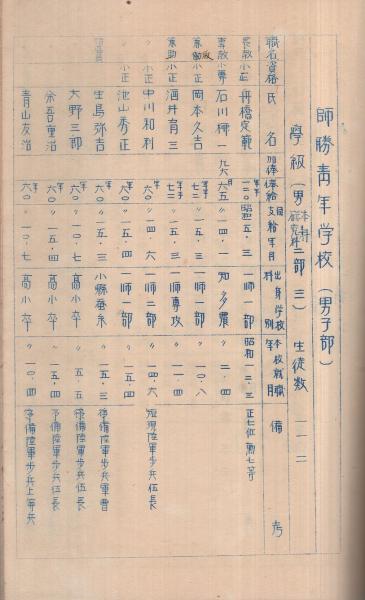 師勝青年学校（男子部）
学級（男 本科 研究科 二部 三） 生徒数 一一二
職名資格 氏名 加俸 俸給 同支給年月 出身学校科別 本校就職年 備考
長教小正 舟橋定範 一二〇 昭五・三 一師一部 昭和一二・三 正七位勲七等
専教小専 石川禪一 九六 六五 〃一四・一 知多農 〃二・四
兼教小正 岡本久吉 七二 〃一五・三 一師一部 〃一〇・八
兼助小正 酒井育三 七二 〃一五・三 一師専攻 〃一一・四
〃小正 中川和利 六〇 〃一四・六 一師二部 〃一四・六 短現陸軍歩兵伍長
〃小正 池山秀正 六〇 〃一五・三 一師一部 〃一五・四
生島弥吉 六〇 〃一五・三 小縣蚕糸 〃一五・三 後備陸軍歩兵軍曹
大野三郎 六〇 〃一〇・七 高小卒 〃五・四 後備陸軍歩兵伍長
余吾重治 六〇 〃一五・四 高小卒 〃一五・四 予備陸軍歩兵伍長
青山友治 六〇 〃一〇・七 高小卒 〃一〇・四 後備陸軍歩兵上等兵